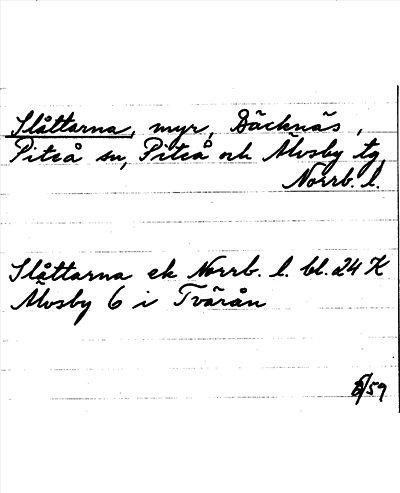 Slåttarna, myr, Bäcknäs,
Piteå sn, Piteå och Älvsby tg
Norrb. l.
Slåttarna ek Norrb. l. bl. 24 K
Älvsby 6 i Tvärån
/59